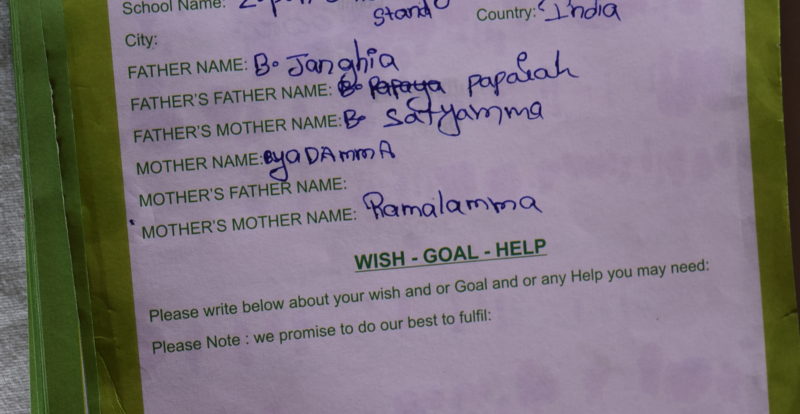 School Name:
Stand Country: India
City:
FATHER NAME: B. Janghia
FATHER'S FATHER NAME: papaiah
FATHER'S MOTHER NAME: B. Satyamma
MOTHER NAME: yaDAmmA
MOTHER'S FATHER NAME:
MOTHER'S MOTHER NAME: Ramalamma
WISH - GOAL - HELP
Please write below about your wish and or Goal and or any Help you may need:
Please Note : we promise to do our best to fulfil: